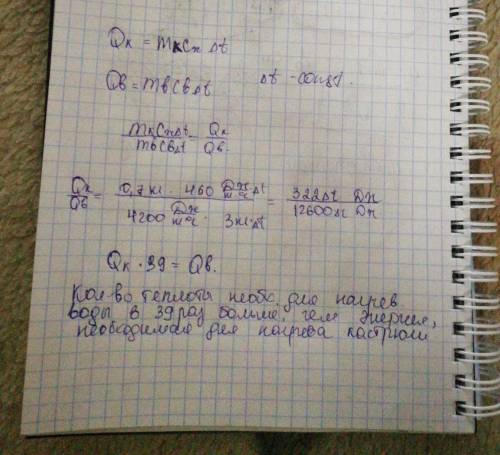 Qк = mкCж Δt
Qв = mвCвΔt Δt - const.
mкCжΔt / mвCвΔt = Qк / Qв.
Qк / Qв = 0,7 кг · 460 Дж Δt / 4200 Дж · 3 кг·Δt = 322Δt Дж / 12600Δt Дж
Qк · 39 = Qв.
Кол-во теплоты необх. для нагрев.
воды в 39 раз больше, чем энергия,
необходимая для нагрева кастрюли